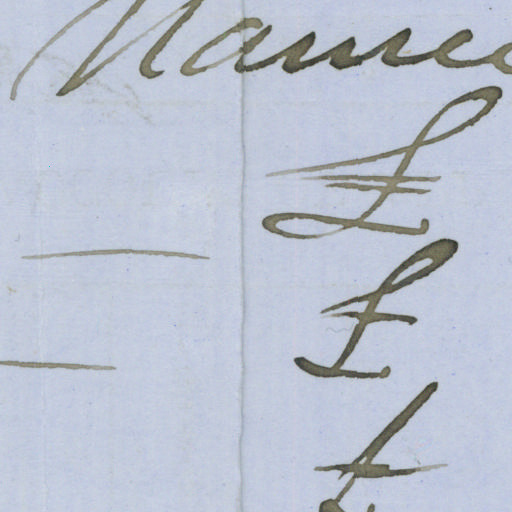 Names
£
—
£
—
£